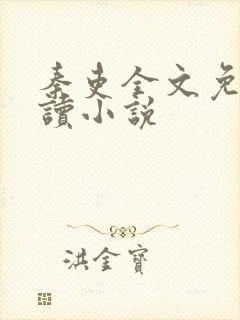 秦吏全文免
讀小說
洪金寶